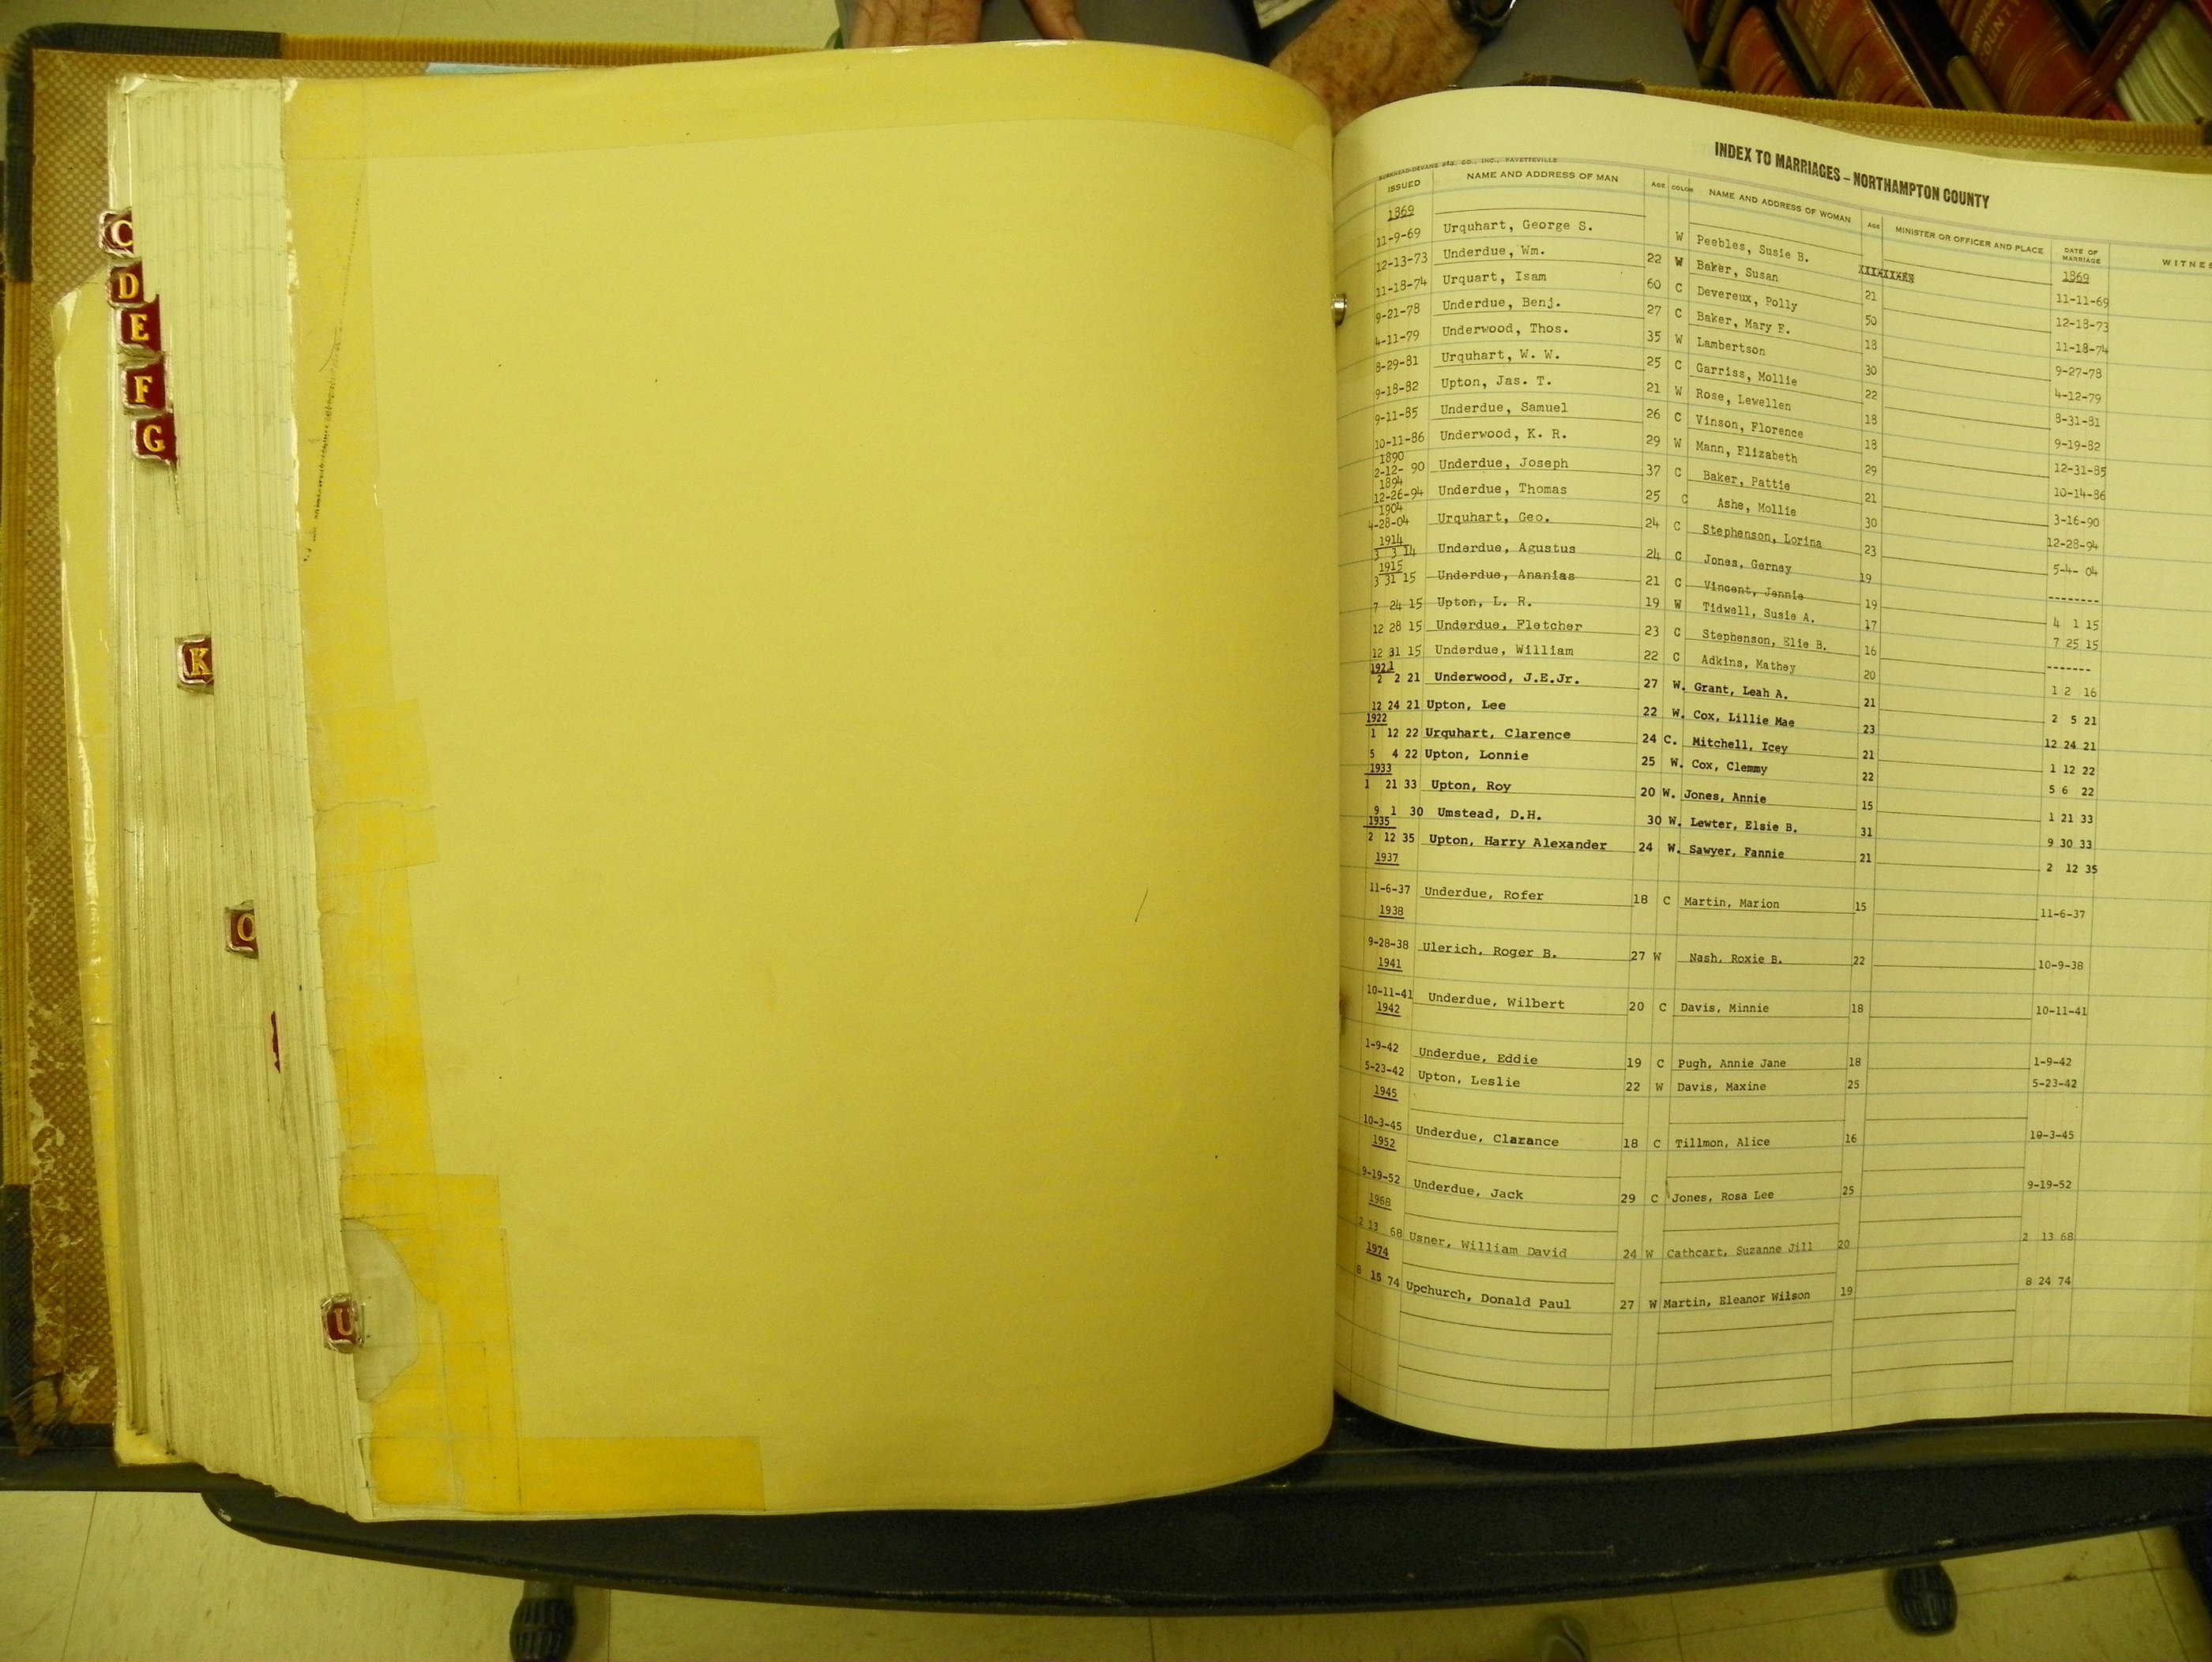 C
D
E
F
G
K
O
U
COUNTY
INDEX TO MARRIAGES – NORTHAMPTON COUNTY
CO., INC., FAYETTEVILLE
ISSUED NAME AND ADDRESS OF MAN AGE COLOR NAME AND ADDRESS OF WOMAN AGE MINISTER OR OFFICER AND PLACE DATE OF MARRIAGE WITNES
1869 1869
11-9-69 Urquhart, George S. W Peebles, Susie B. 11-11-69
12-13-73 Underdue, Wm. 22 W Baker, Susan 21 12-18-73
11-18-74 Urquart, Isam 60 C Devereux, Polly 50 11-18-74
9-21-78 Underdue, Benj. 27 C Baker, Mary F. 18 9-27-78
4-11-79 Underwood, Thos. 35 W Lambertson 30 4-12-79
8-29-81 Urquhart, W. W. 25 C Garriss, Mollie 22 8-31-81
9-18-82 Upton, Jas. T. 21 W Rose, Lewellen 18 9-19-82
9-11-85 Underdue, Samuel 26 C Vinson, Florence 18 12-31-85
10-11-86 Underwood, K. R. 29 W Mann, Elizabeth 29 10-14-86
1890
2-12- 90 Underdue, Joseph 37 C Baker, Pattie 21 3-16-90
1894
12-26-94 Underdue, Thomas 25 C Ashe, Mollie 30 12-28-94
1904
4-28-04 Urquhart, Geo. 24 C Stephenson, Lorina 23 5-4- 04
1914
3 3 14 Underdue, Agustus 24 C Jones, Gerney 19 --------
1915
3 31 15 Underdue, Ananias 21 C Vincent, Jennie 19 4 1 15
7 24 15 Upton, L. R. 19 W Tidwell, Susie A. 17 7 25 15
12 28 15 Underdue, Fletcher 23 C Stephenson, Elie B. 16 -------
12 31 15 Underdue, William 22 C Adkins, Mathey 20 1 2 16
1921
2 2 21 Underwood, J.E.Jr. 27 W. Grant, Leah A. 21 2 5 21
12 24 21 Upton, Lee 22 W. Cox, Lillie Mae 23 12 24 21
1922
1 12 22 Urquhart, Clarence 24 C. Mitchell, Icey 21 1 12 22
5 4 22 Upton, Lonnie 25 W. Cox, Clemmy 22 5 6 22
1933
1 21 33 Upton, Roy 20 W. Jones, Annie 15 1 21 33
9 1 30 Umstead, D.H. 30 W. Lewter, Elsie B. 31 9 30 33
1935
2 12 35 Upton, Harry Alexander 24 W. Sawyer, Fannie 21 2 12 35
1937
11-6-37 Underdue, Rofer 18 C Martin, Marion 15 11-6-37
1938
9-28-38 Ulerich, Roger B. 27 W Nash, Roxie B. 22 10-9-38
1941
10-11-41 Underdue, Wilbert 20 C Davis, Minnie 18 10-11-41
1942
1-9-42 Underdue, Eddie 19 C Pugh, Annie Jane 18 1-9-42
5-23-42 Upton, Leslie 22 W Davis, Maxine 25 5-23-42
1945
10-3-45 Underdue, Clarance 18 C Tillmon, Alice 16 10-3-45
1952
9-19-52 Underdue, Jack 29 C Jones, Rosa Lee 25 9-19-52
1968
2 13 68 Usner, William David 24 W Cathcart, Suzanne Jill 20 2 13 68
1974
8 15 74 Upchurch, Donald Paul 27 W Martin, Eleanor Wilson 19 8 24 74